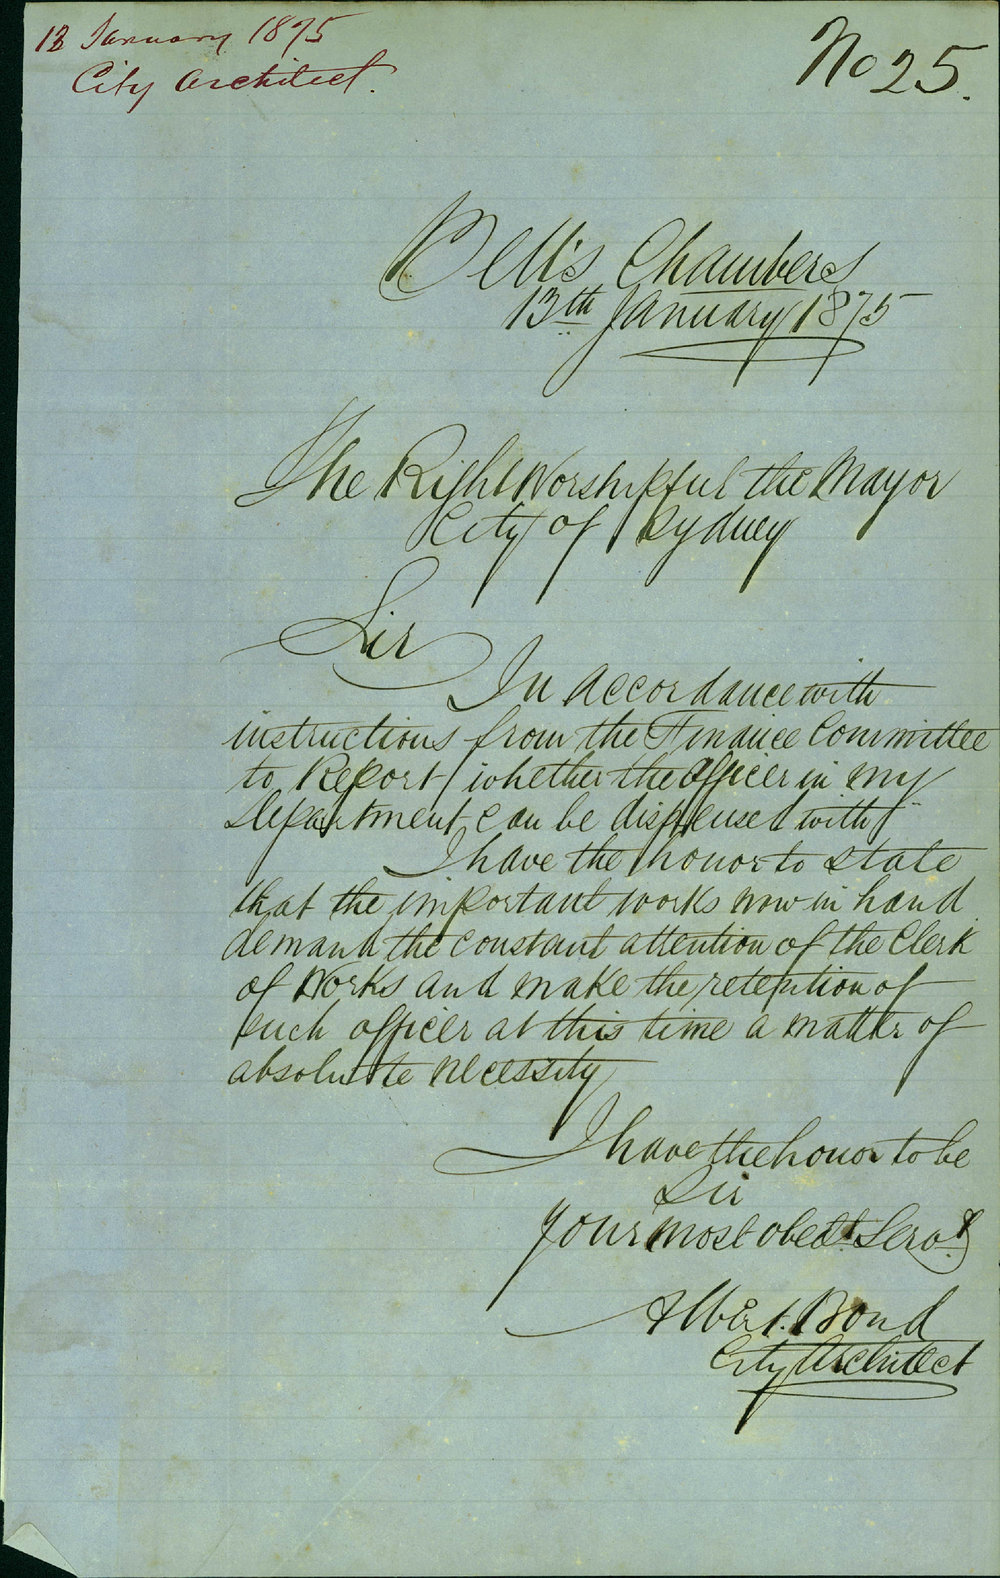 13 January 1875
City Architect.
No 25.
Bell's Chambers
13th January 1875
The Right Worshipful the Mayor
City of Sydney
Sir
In accordance with
instructions from the Finance Committee
to Report whether the Officer in my
Department can be dispensed with
I have the honor to state
that the important works now in hand
demand the constant attention of the Clerk
of Works and make the retention of
such officer at this time a matter of
absolute necessity
I have the honor to be
Sir
Your most obedt. Servt.
Albert Bond
City Architect